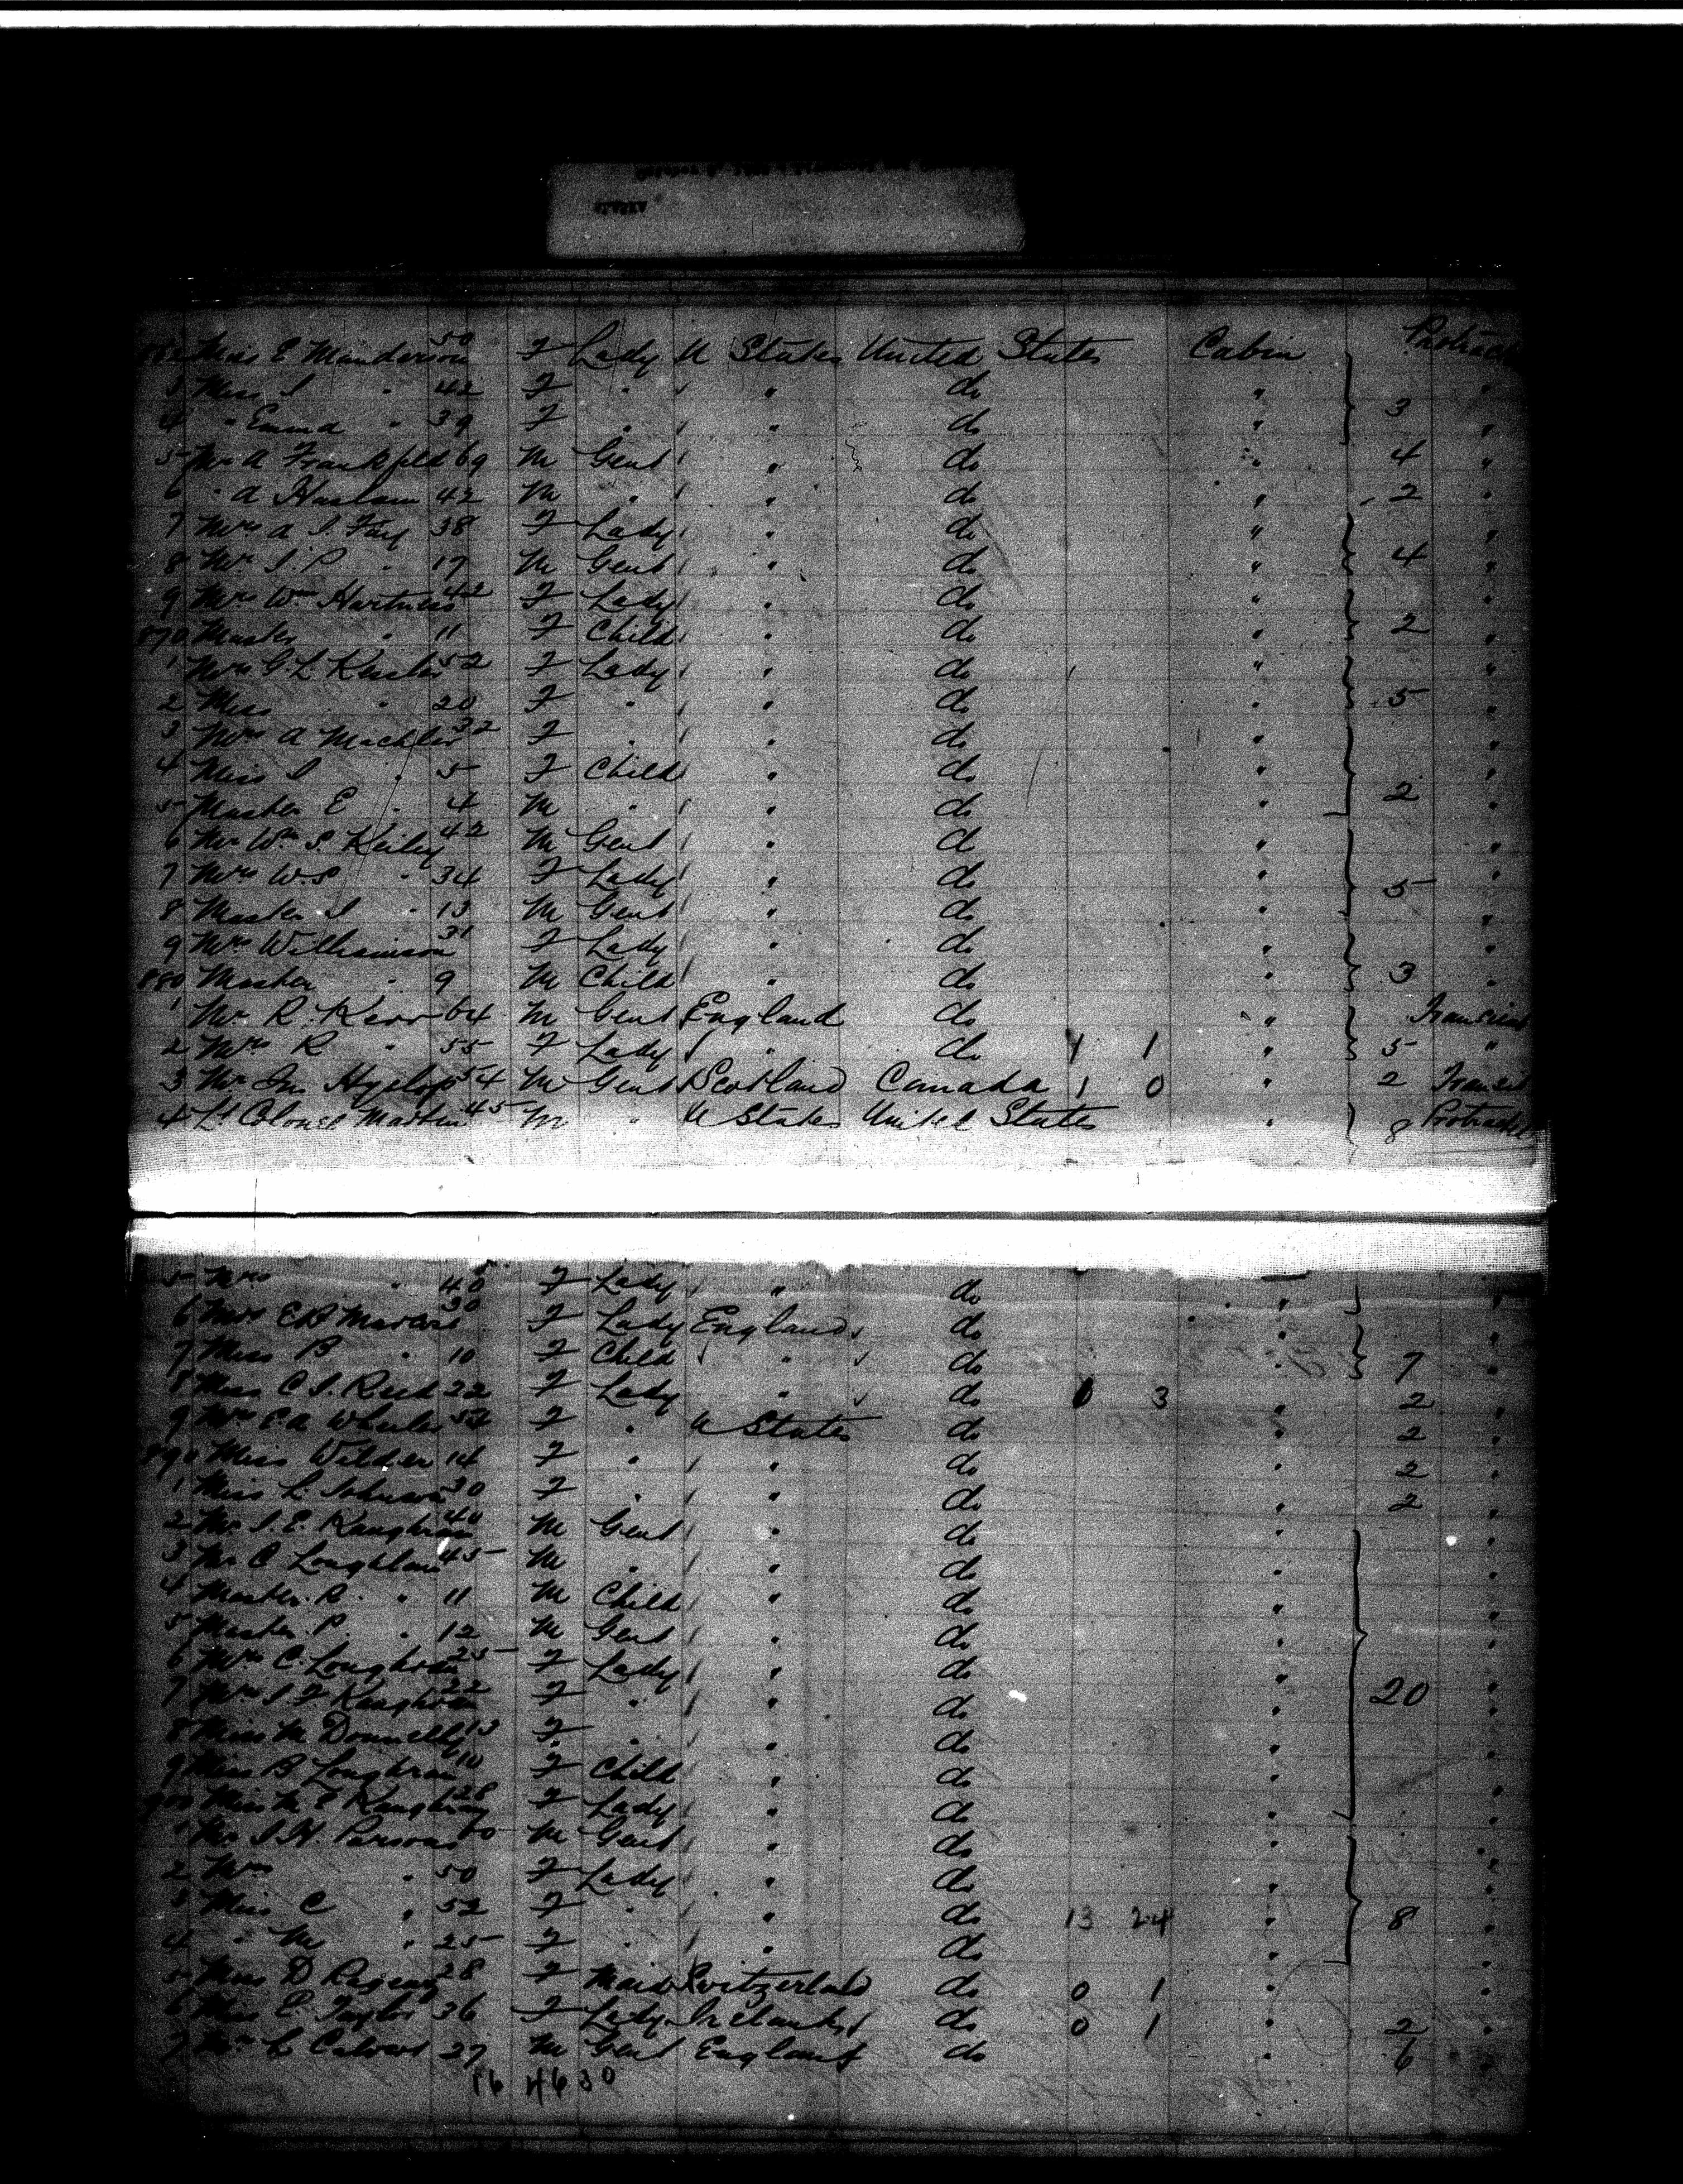 862 Miss E Manderson 50 F Lady U States United States Cabin
3 Miss S " 42 F " " do "
4 " Emma " 39 F " " do " 3 "
5 Mr A Frankfeld 69 M Gent " do " 4 "
6 " A Haslam 42 M " " do " 2 "
7 Mrs A S. Fay 38 F Lady " do " "
8 Mr S. P " 17 M Gent " do " 4 "
9 Mrs Wm Hartness 42 F Lady " do " "
870 Master " 11 F Child " do " 2 "
1 Mrs G L Kessler 52 F Lady " do " "
2 Miss " 20 F " " do " 5 "
3 Mrs A Machler 32 F " " do " "
4 Miss S " 5 F Child " do " "
5 Master E " 4 M " " do " 2 "
6 Mr Wm S. Keiley 42 M Gent " d " "
7 Mrs W.S " 34 F Lady " do " 5 "
8 Master S " 13 M Gent " do " "
9 Mrs Williamson 31 F Lady " do " "
880 Master " 9 M Child " do " 3 "
1 Mr R. Kerr 64 M Gent England do "
2 Mrs R " 55 F Lady " do 1 1 " 5 "
3 Mr Jno Hyslop 54 M Gent Scotland Canada 1 0 " 2 Transit
4 Lt Colonel Martin 45 M " U States United States " 8 Protracted
5 Mrs " 40 F Lady " do " "
6 Mrs E B 30 F Lady England do " "
7 Miss B " 10 F Child " do " 7 "
8 Miss C S. Reed 22 F Lady " do 0 3 " 2 "
9 Mrs E. A Wheeler F " U States do " 2 "
890 Miss Wilder 14 F " " do " 2 "
1 Miss L. Johnson 30 F " " do " 2 "
2 Mr S. E. 40 M Gent " do " "
3 Mr C Loughlan 45 M " " do " "
4 Master R " 11 M Child " do " "
5 Master P. " 12 M Gent " do " "
6 Mrs C Loughran 25 F Lady " do " "
7 Mrs S F 22 F " " do " 20 "
8 Miss M Donnelly 13 F " " do " "
9 Miss B Loughran 10 F Child " do " "
900 Miss M E 28 F Lady " do " "
1 Mr S. H. Parson 60 M Gent " do " "
2 Mrs " 50 F Lady " do " "
3 Miss C " 52 F " " do 13 24 " 8 "
4 " M " 25 F " " do " "
5 Miss D 28 F Maid Switzerland do 0 1 " "
6 Miss E. Taylor 36 F Lady Ireland do 0 1 " 2 "
7 Mr L 27 M Gent England do " 6 "
16 4630